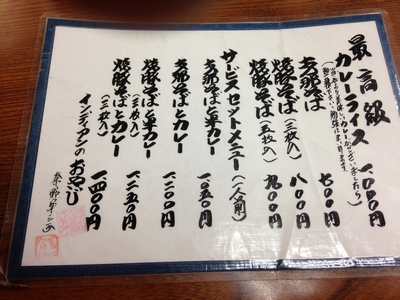 最高級
カレーライス 一〇五〇円
支那そば 七〇〇円
焼豚そば(三枚入) 八〇〇円
焼豚そば(五枚入) 九〇〇円
サービスセットメニュー(一人前)
支那そばと半カレー 一〇五〇円
支那そばとカレー 一二〇〇円
焼豚そばと半カレー(三枚入) 一二五〇円
焼豚そばとカレー(三枚入) 一四〇〇円
インディアンのおやじ